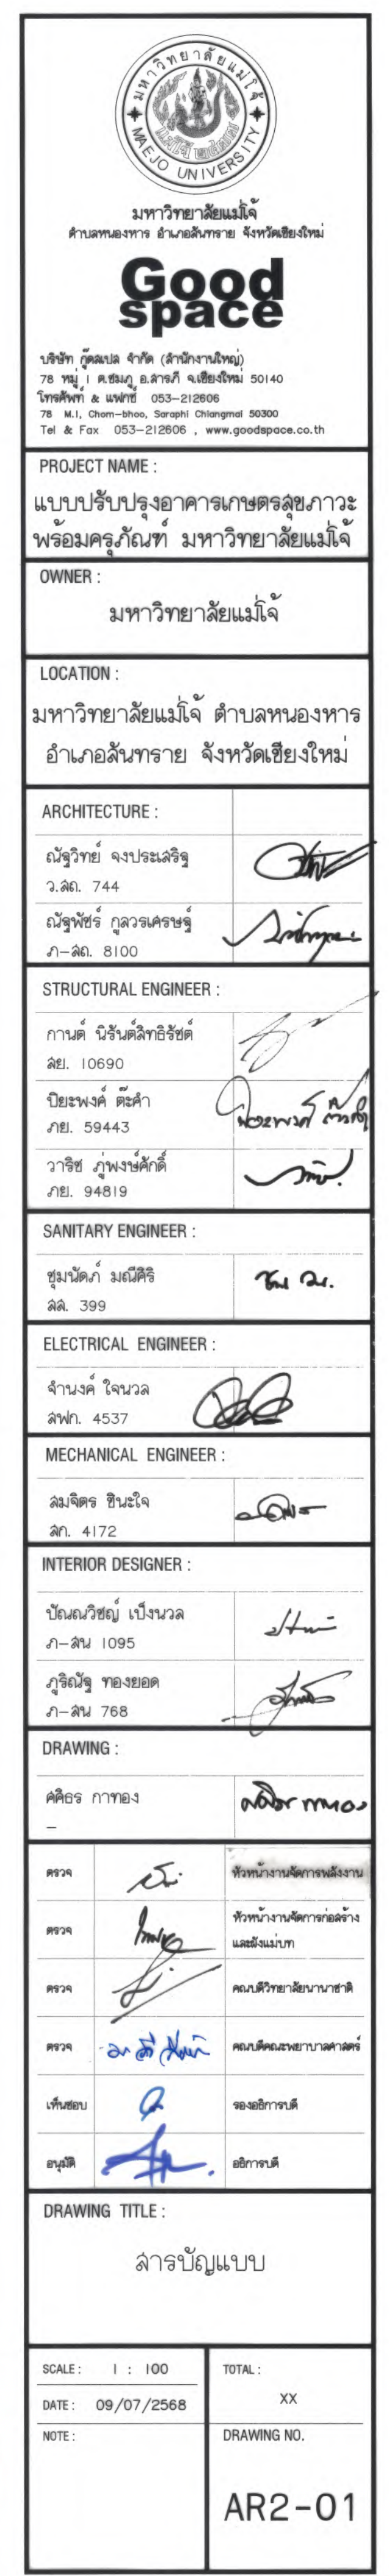 มหาวิทยาลัยแม่โจ้
MAEJO UNIVERSITY
มหาวิทยาลัยแม่โจ้
ตำบลหนองหาร อำเภอสันทราย จังหวัดเชียงใหม่
Good
space
บริษัท กู๊ดสเปส จำกัด (สำนักงานใหญ่)
78 หมู่ 1 ต.ชมภู อ.สารภี จ.เชียงใหม่ 50140
โทรศัพท์ & แฟกซ์ 053-212606
78 M.1, Chom-bhoo, Saraphi Chiangmai 50300
Tel & Fax 053-212606 , www.goodspace.co.th
PROJECT NAME :
แบบปรับปรุงอาคารเกษตรสุขภาวะ
พร้อมครุภัณฑ์ มหาวิทยาลัยแม่โจ้
OWNER :
มหาวิทยาลัยแม่โจ้
LOCATION :
มหาวิทยาลัยแม่โจ้ ตำบลหนองหาร
อำเภอสันทราย จังหวัดเชียงใหม่
ARCHITECTURE :
ณัฐวิทย์ จงประเสริฐ
ว.สถ. 744
ณัฐพัชร์ กูลวรเศรษฐ์
ภ-สถ. 8100
STRUCTURAL ENGINEER :
กานต์ นิรันต์สิทธิรัชต์
สย. 10690
ปิยะพงศ์ ต๊ะคำ
ภย. 59443
วาริช ภู่พงษ์ศักดิ์
ภย. 94819
SANITARY ENGINEER :
ชุมนัดภ์ มณีศิริ
สส. 399
ELECTRICAL ENGINEER :
จำนงค์ ใจนวล
สฟก. 4537
MECHANICAL ENGINEER :
สมจิตร ชินะใจ
สก. 4172
INTERIOR DESIGNER :
ปัณณวิชญ์ เป็งนวล
ภ-สน 1095
ภูริณัฐ ทองยอด
ภ-สน 768
DRAWING :
ศศิธร กาทอง
-
ตรวจ หัวหน้างานจัดการพลังงาน
ตรวจ หัวหน้างานจัดการก่อสร้าง
และผังแม่บท
ตรวจ คณบดีวิทยาลัยนานาชาติ
ตรวจ คณบดีคณะพยาบาลศาสตร์
เห็นชอบ รองอธิการบดี
อนุมัติ อธิการบดี
DRAWING TITLE :
สารบัญแบบ
SCALE : 1 : 100
TOTAL :
DATE : 09/07/2568
XX
NOTE :
DRAWING NO.
AR2-01